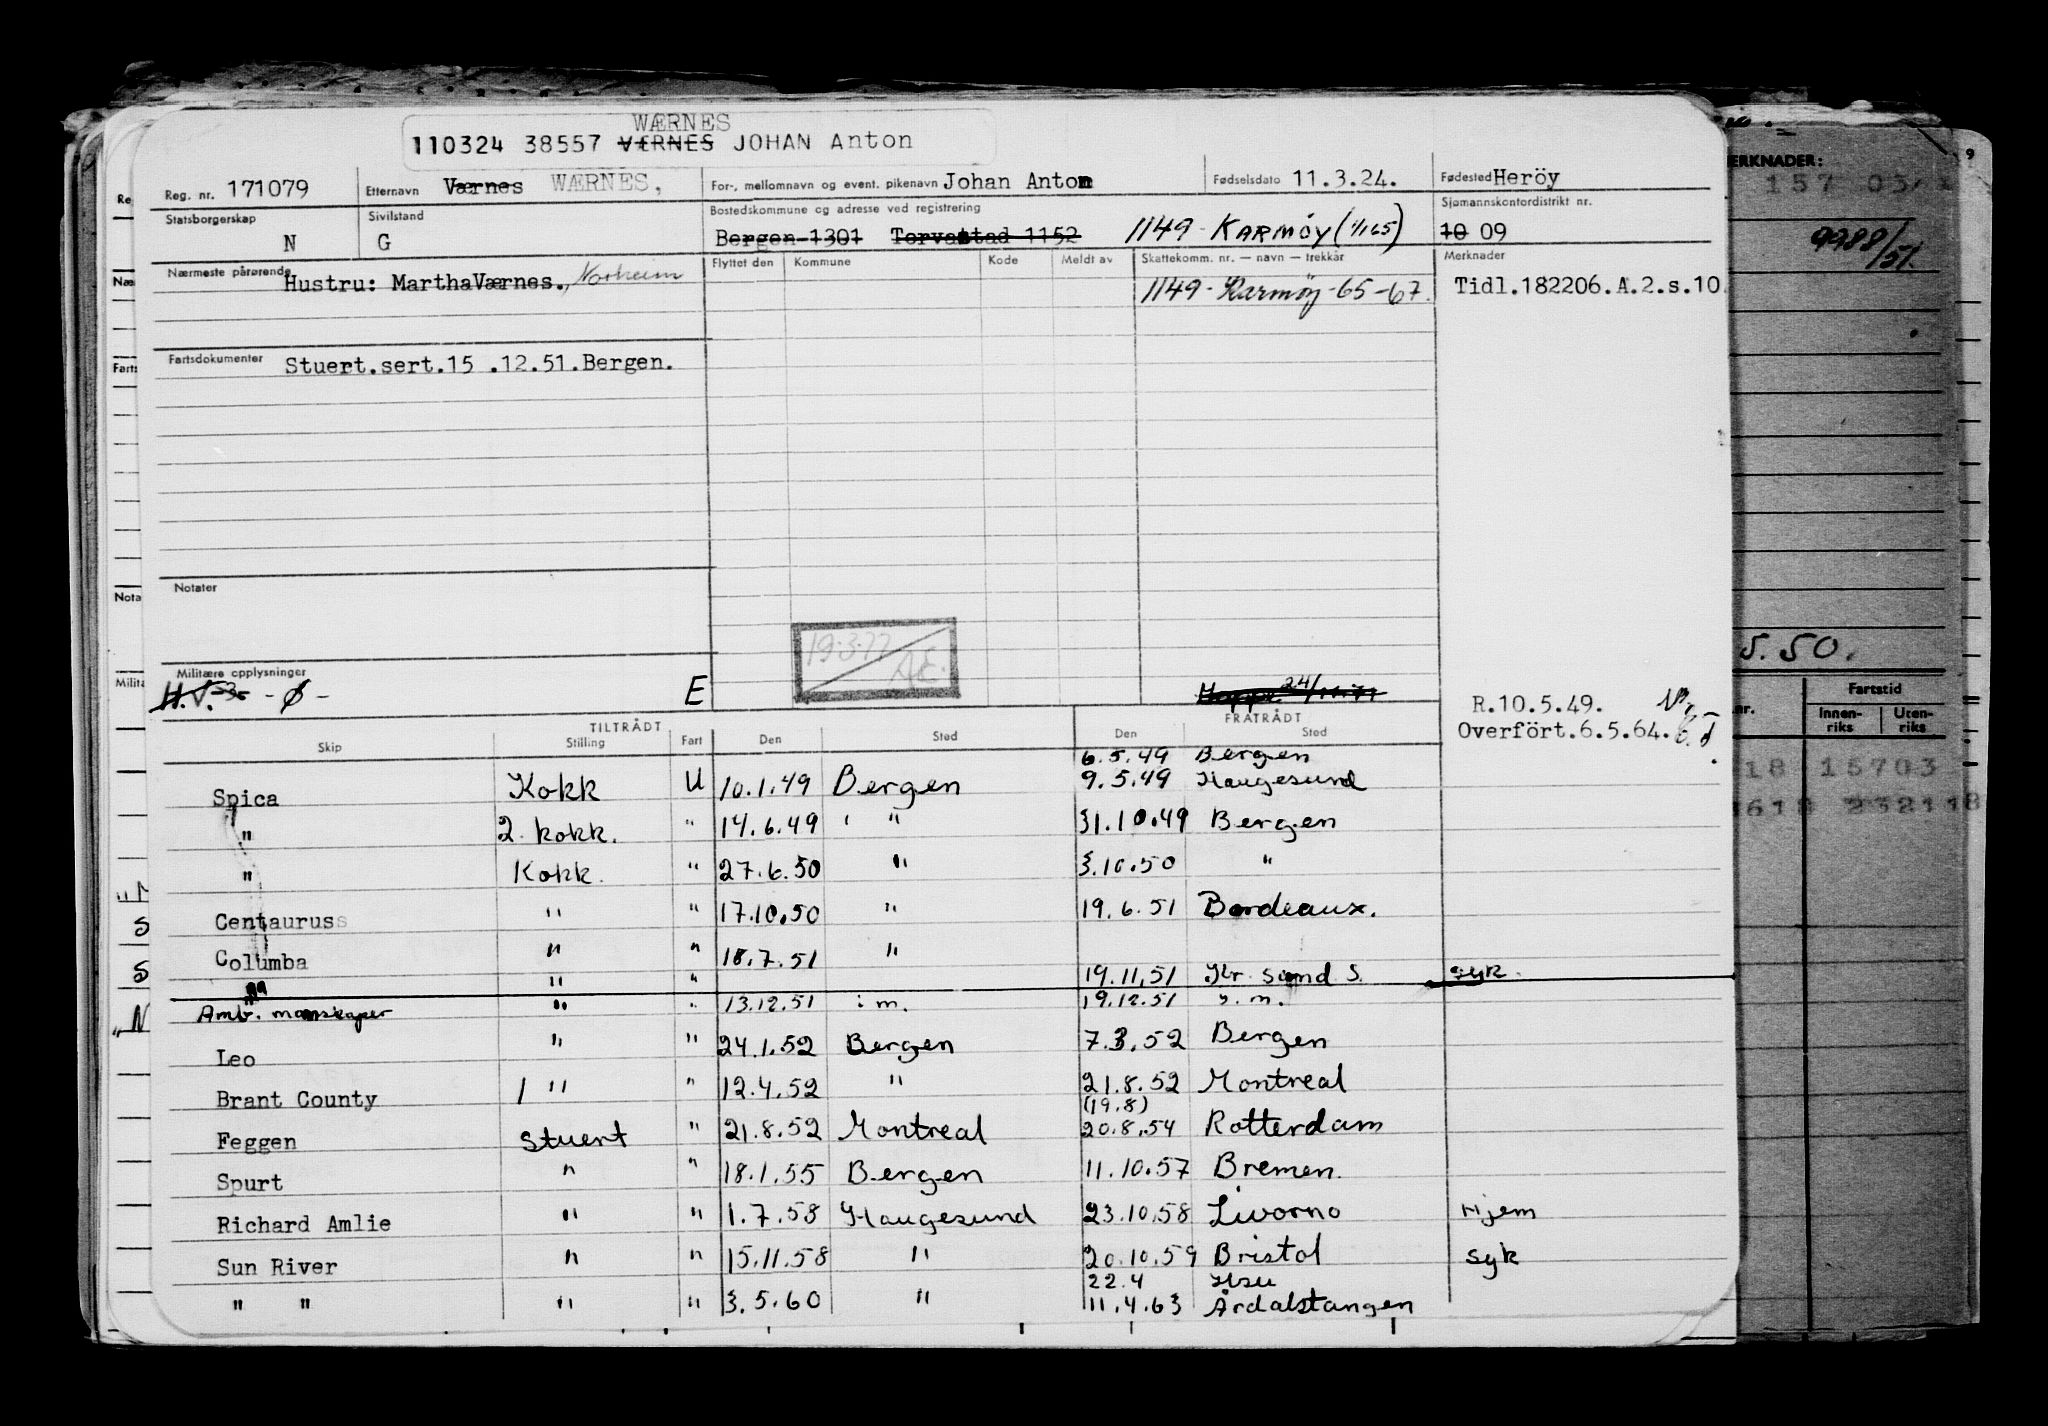 WÆRNES
110324 38557 VÆRNES JOHAN Anton
Reg. nr. 171079 Etternavn Værnes WÆRNES, For-, mellomnavn og event. pikenavn Johan Anton Fødselsdato 11.3.24. Fødested Heröy
Statsborgerskap N Sivilstand G Bostedskommune og adresse ved registrering Bergen 1301 Torvastad 1152 1149 KARMØY (1/1 65) Sjømannskontordistrikt nr. 10 09
Nærmeste pårørende Flyttet den Kommune Kode Meldt av Skattekomm. nr. — navn — trekkår Merknader
Hustru: Martha Værnes., Norheim 1149 - Karmøy - 65-67. Tidl.182206.A.2.s.10
Fartsdokumenter Stuert.sert.15 .12.51.Bergen.
Notater
19.3.77
Militære opplysninger
H.V. - Ø - E
R.10.5.49.
Overfört.6.5.64.
TILTRÅDT FRATRÅDT
Skip Stilling Fart Den Sted Den Sted
6.5.49 Bergen
Spica Kokk U 10.1.49 Bergen 9.5.49 Haugesund
" 2. kokk. " 14.6.49 " 31.10.49 Bergen
" Kokk. " 27.6.50 " 3.10.50 "
Centauruss " " 17.10.50 " 19.6.51 Bordeaux.
Columba " " 18.7.51 "
" " " 19.11.51 Kr. sund S. syk.
Amb. manskaper " " 13.12.51 i m. 19.12.51 i. m.
Leo " " 24.1.52 Bergen 7.3.52 Bergen
Brant County 1 " " 12.4.52 " 21.8.52 Montreal
(19.8)
Feggen Stuert " 21.8.52 Montreal 20.8.54 Rotterdam
Spurt " " 18.1.55 Bergen 11.10.57 Bremen.
Richard Amlie " " 1.7.58 Haugesund 23.10.58 Livorno Hjem
Sun River " " 15.11.58 " 20.10.59 Bristol syk
22.4 Hsu
" " " " 3.5.60 " 11.4.63 Årdalstangen
MERKNADER: 9
157 03
9988/51.
5.50.
Fartstid
Innenriks Utenriks
18 15703
3618 232118